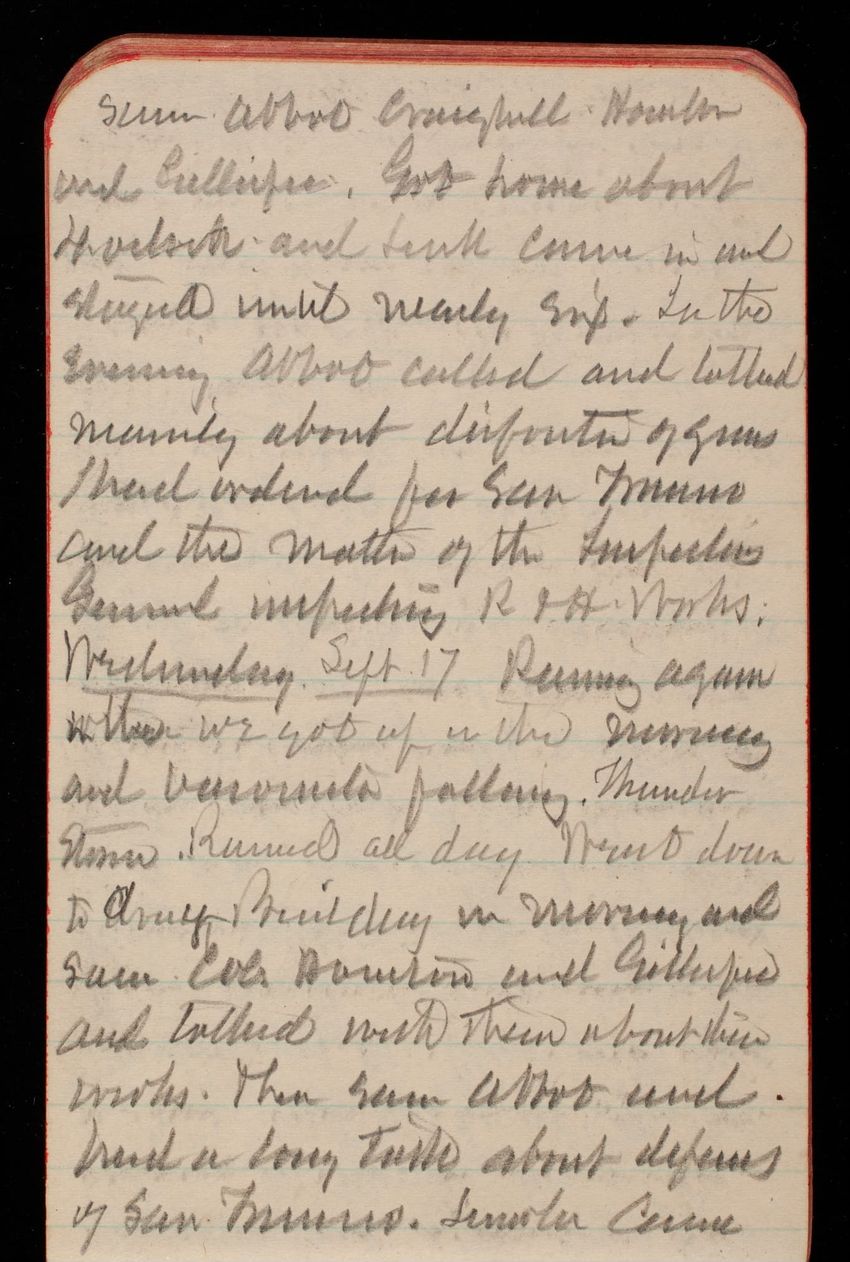 seeing Abbot Craighill Houston
and Gillespie. Got home about
and Senk came in and
stayed until nearly six. In the
Evening Abbot called and talked
mainly about disposition of guns
I had ordered for San Franco
and the matter of the Inspector
General inspecting R & H Works.
Wednesday Sept 17 Raining again
when we got up in the morning
and barometer falling. Thunder
Storm. Rained all day Went down
to Army Building in morning and
saw Cols Houston and Gillespie
and talked with them about their
works. Then saw Abbot and
had a long talk about defenses
of San Franco. Senator Came